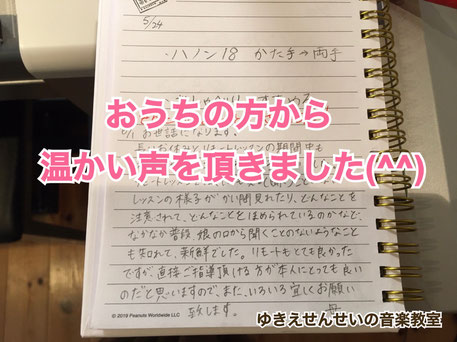 5/24
・ハノン18 かた手→両手
おうちの方から
お世話になります。
温かい声を頂きました(^^)
レッスンの様子がかい間見れたり、どんなことを
注意されて、どんなことをほめられているのかなど、
なかなか普段、娘の口から聞くことのないようなこと
も知れて、新鮮でした。リモートもとても良かった
ですが、直接ご指導頂ける方が本人にとっても良い
のだと思いますので、また、いろいろ宜しくお願い
致します。 母
© 2019 Peanuts Worldwide LLC
ゆきえせんせいの音楽教室